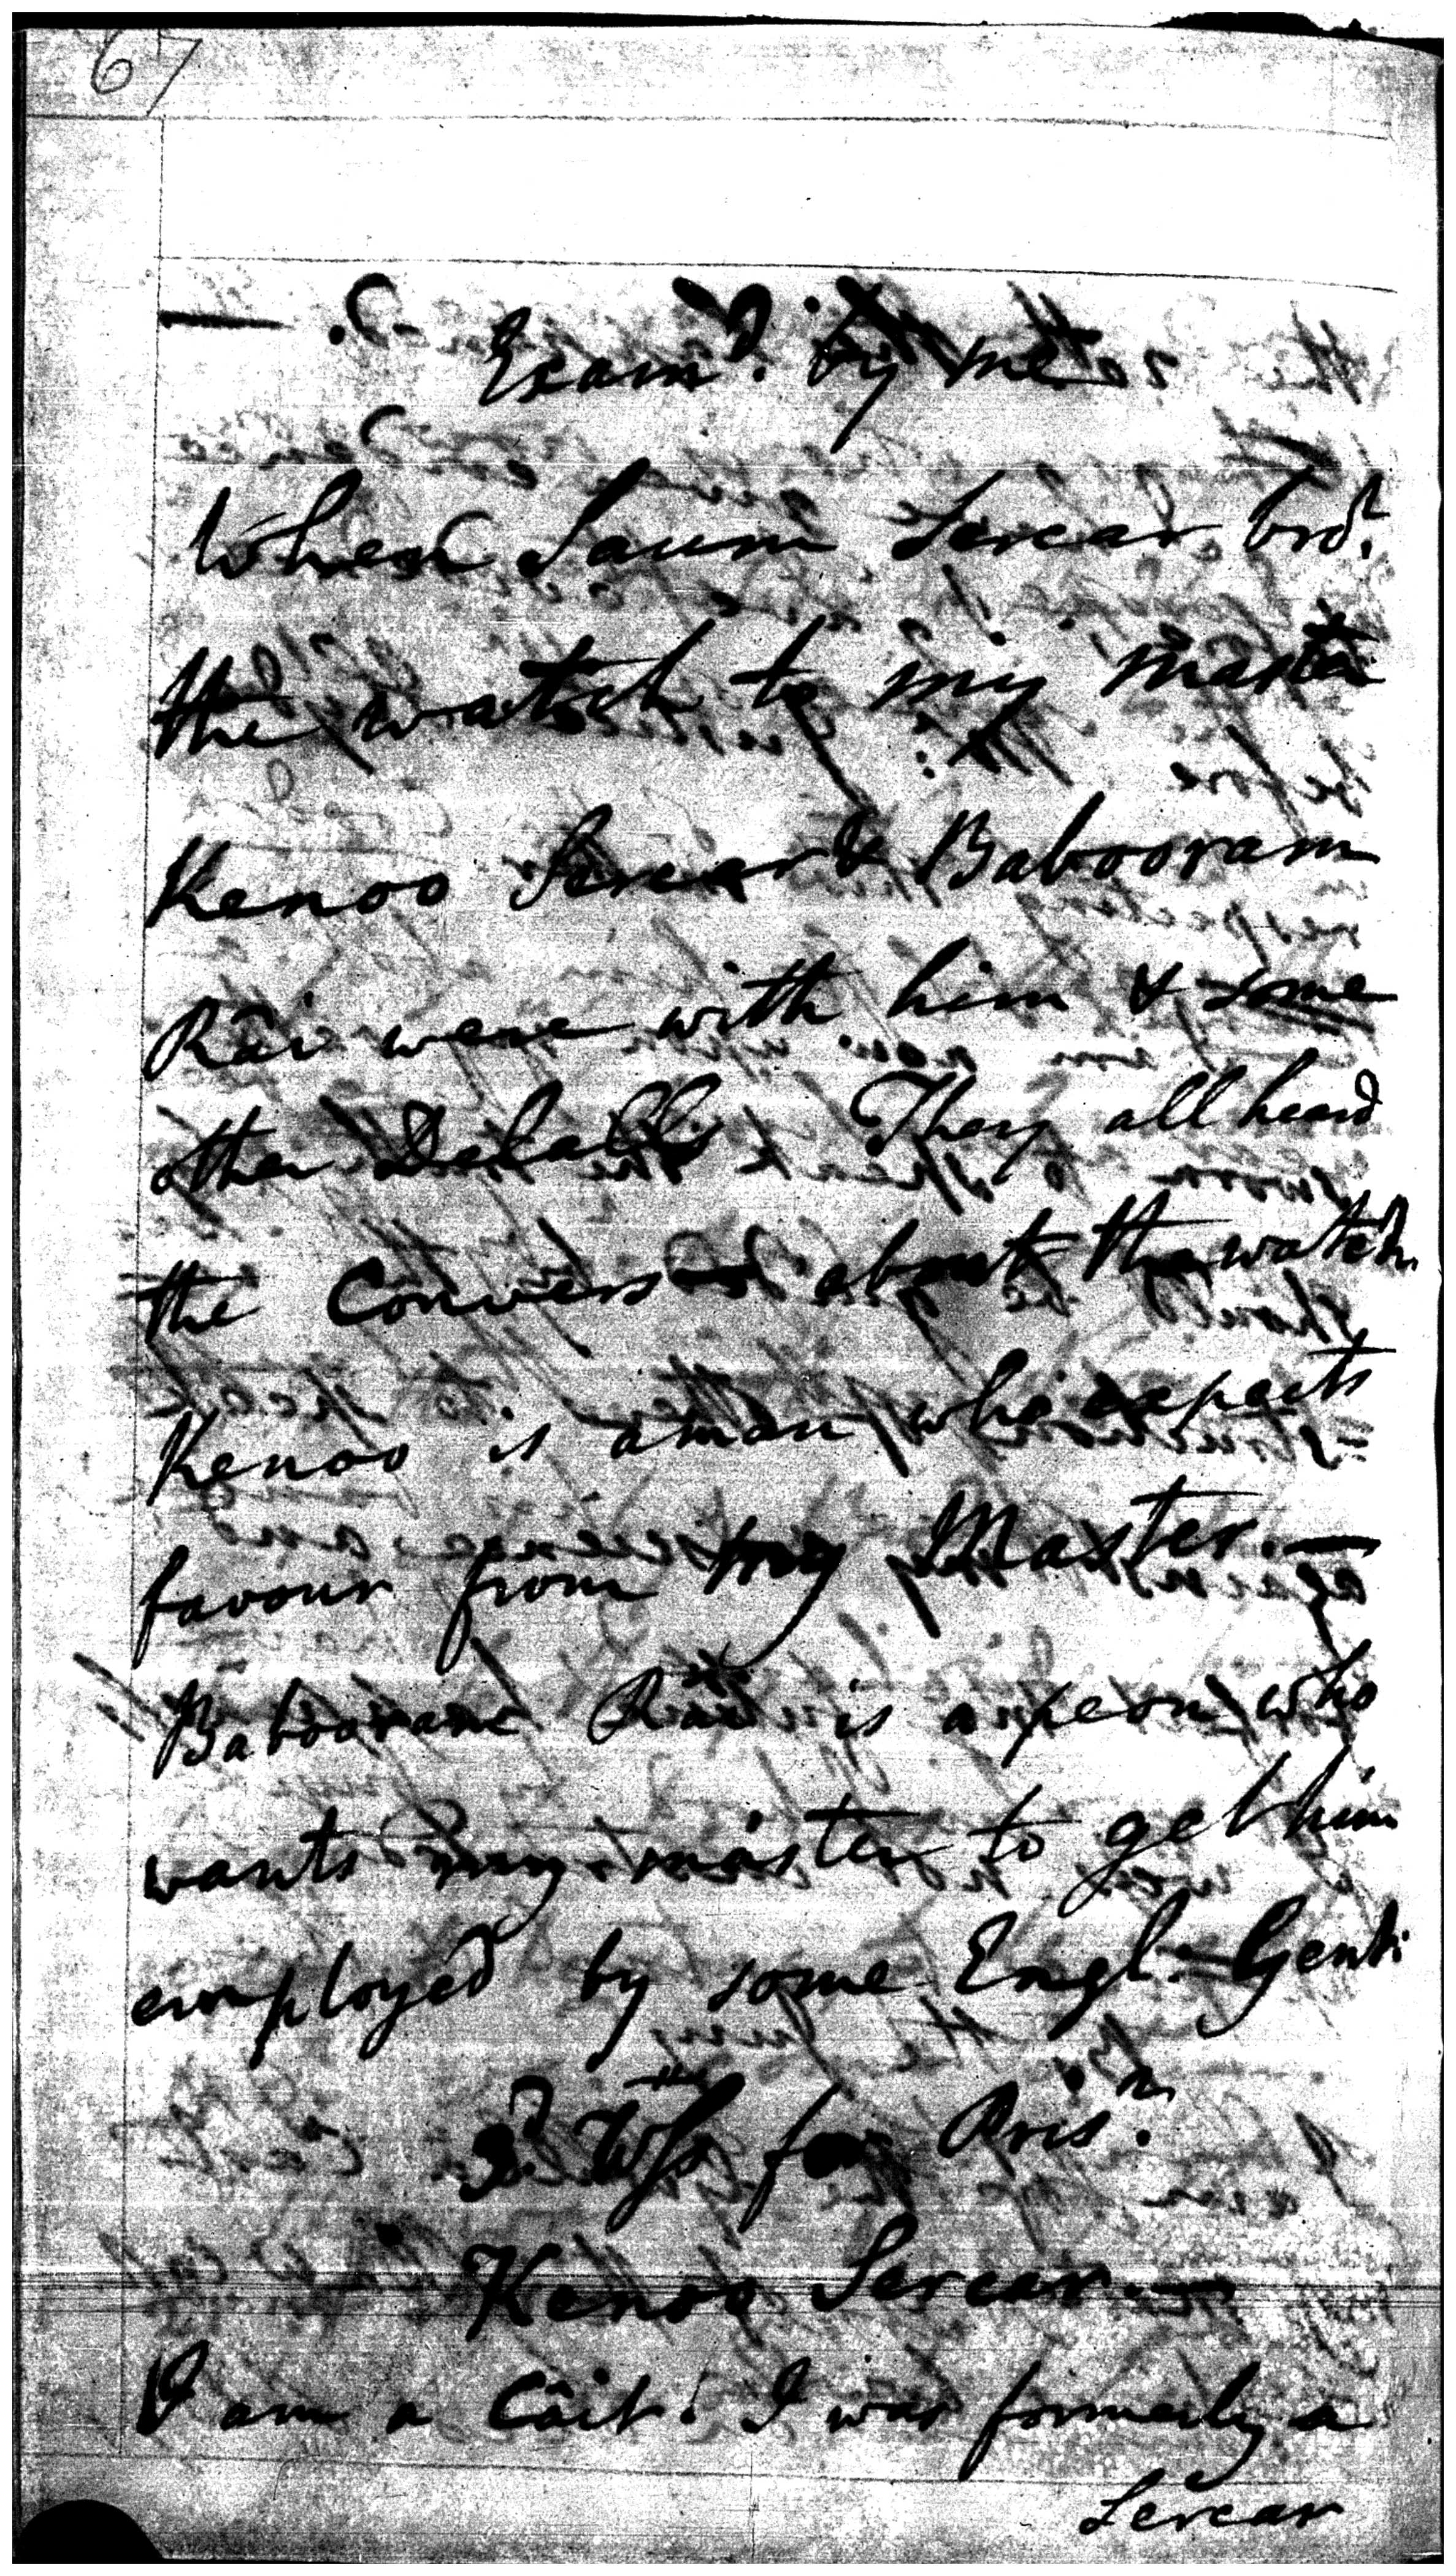 67
Exam.d by me
When Saum Sercar bro.t
the watch to my master
Kenoo Sercar & Babooram
Râi were with him & some
other Delalls They all heard
the Convers about the watch
Kenoo is a man who expects
favour from my Master. —
Babooram Râi is a peon who
wants my master to get him
employed by some Engl. Gent.
3.d Wss for Pris.r
Kenoo Sercar. —
I am a Câit. I was formerly a
Sercar